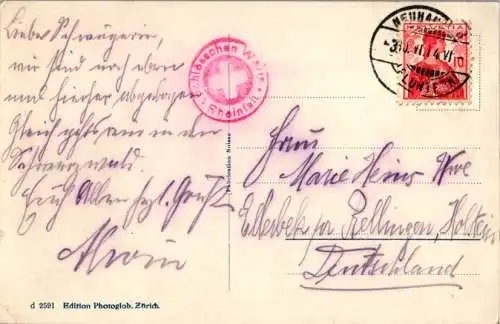 Liebe Schwägerin,
wir sind nach oben
und hierher abgebogen
Gleich gehts in der
Schwarzwald.
Euch Allen hzl. Grüße
Alwin
Schlösschen Wörth
Rheinfall
NEUHAUSEN
HELVETIA
Frau
Marie Heins Wwe
Ellerbek per Rellingen, Holstein
Deutschland
d 2591 Edition Photoglob, Zürich.